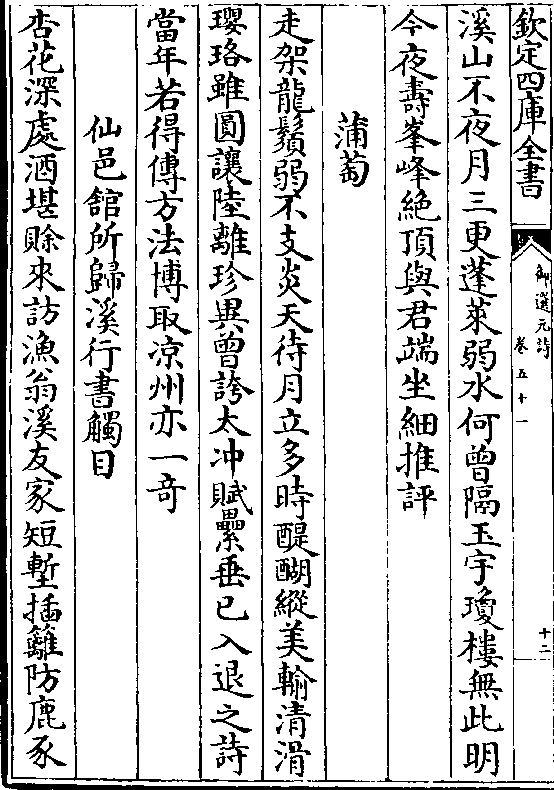 欽定四庫全書
御選元詩
卷五十一
十二
溪山不夜月三更蓬萊弱水何曾隔玉宇瓊樓無此明
今夜壽峯峰絶頂與君端坐細推評
蒲萄
走架龍鬚弱不支炎天待月立多時醍醐縱美輸清滑
瓔珞雖圓讓陸離珍異曽誇太冲賦纍垂已入退之詩
當年若得傳方法博取凉州亦一竒
仙邑館所歸溪行書觸目
杏花深處酒堪賒來訪漁翁溪友家短塹插籬防鹿豕